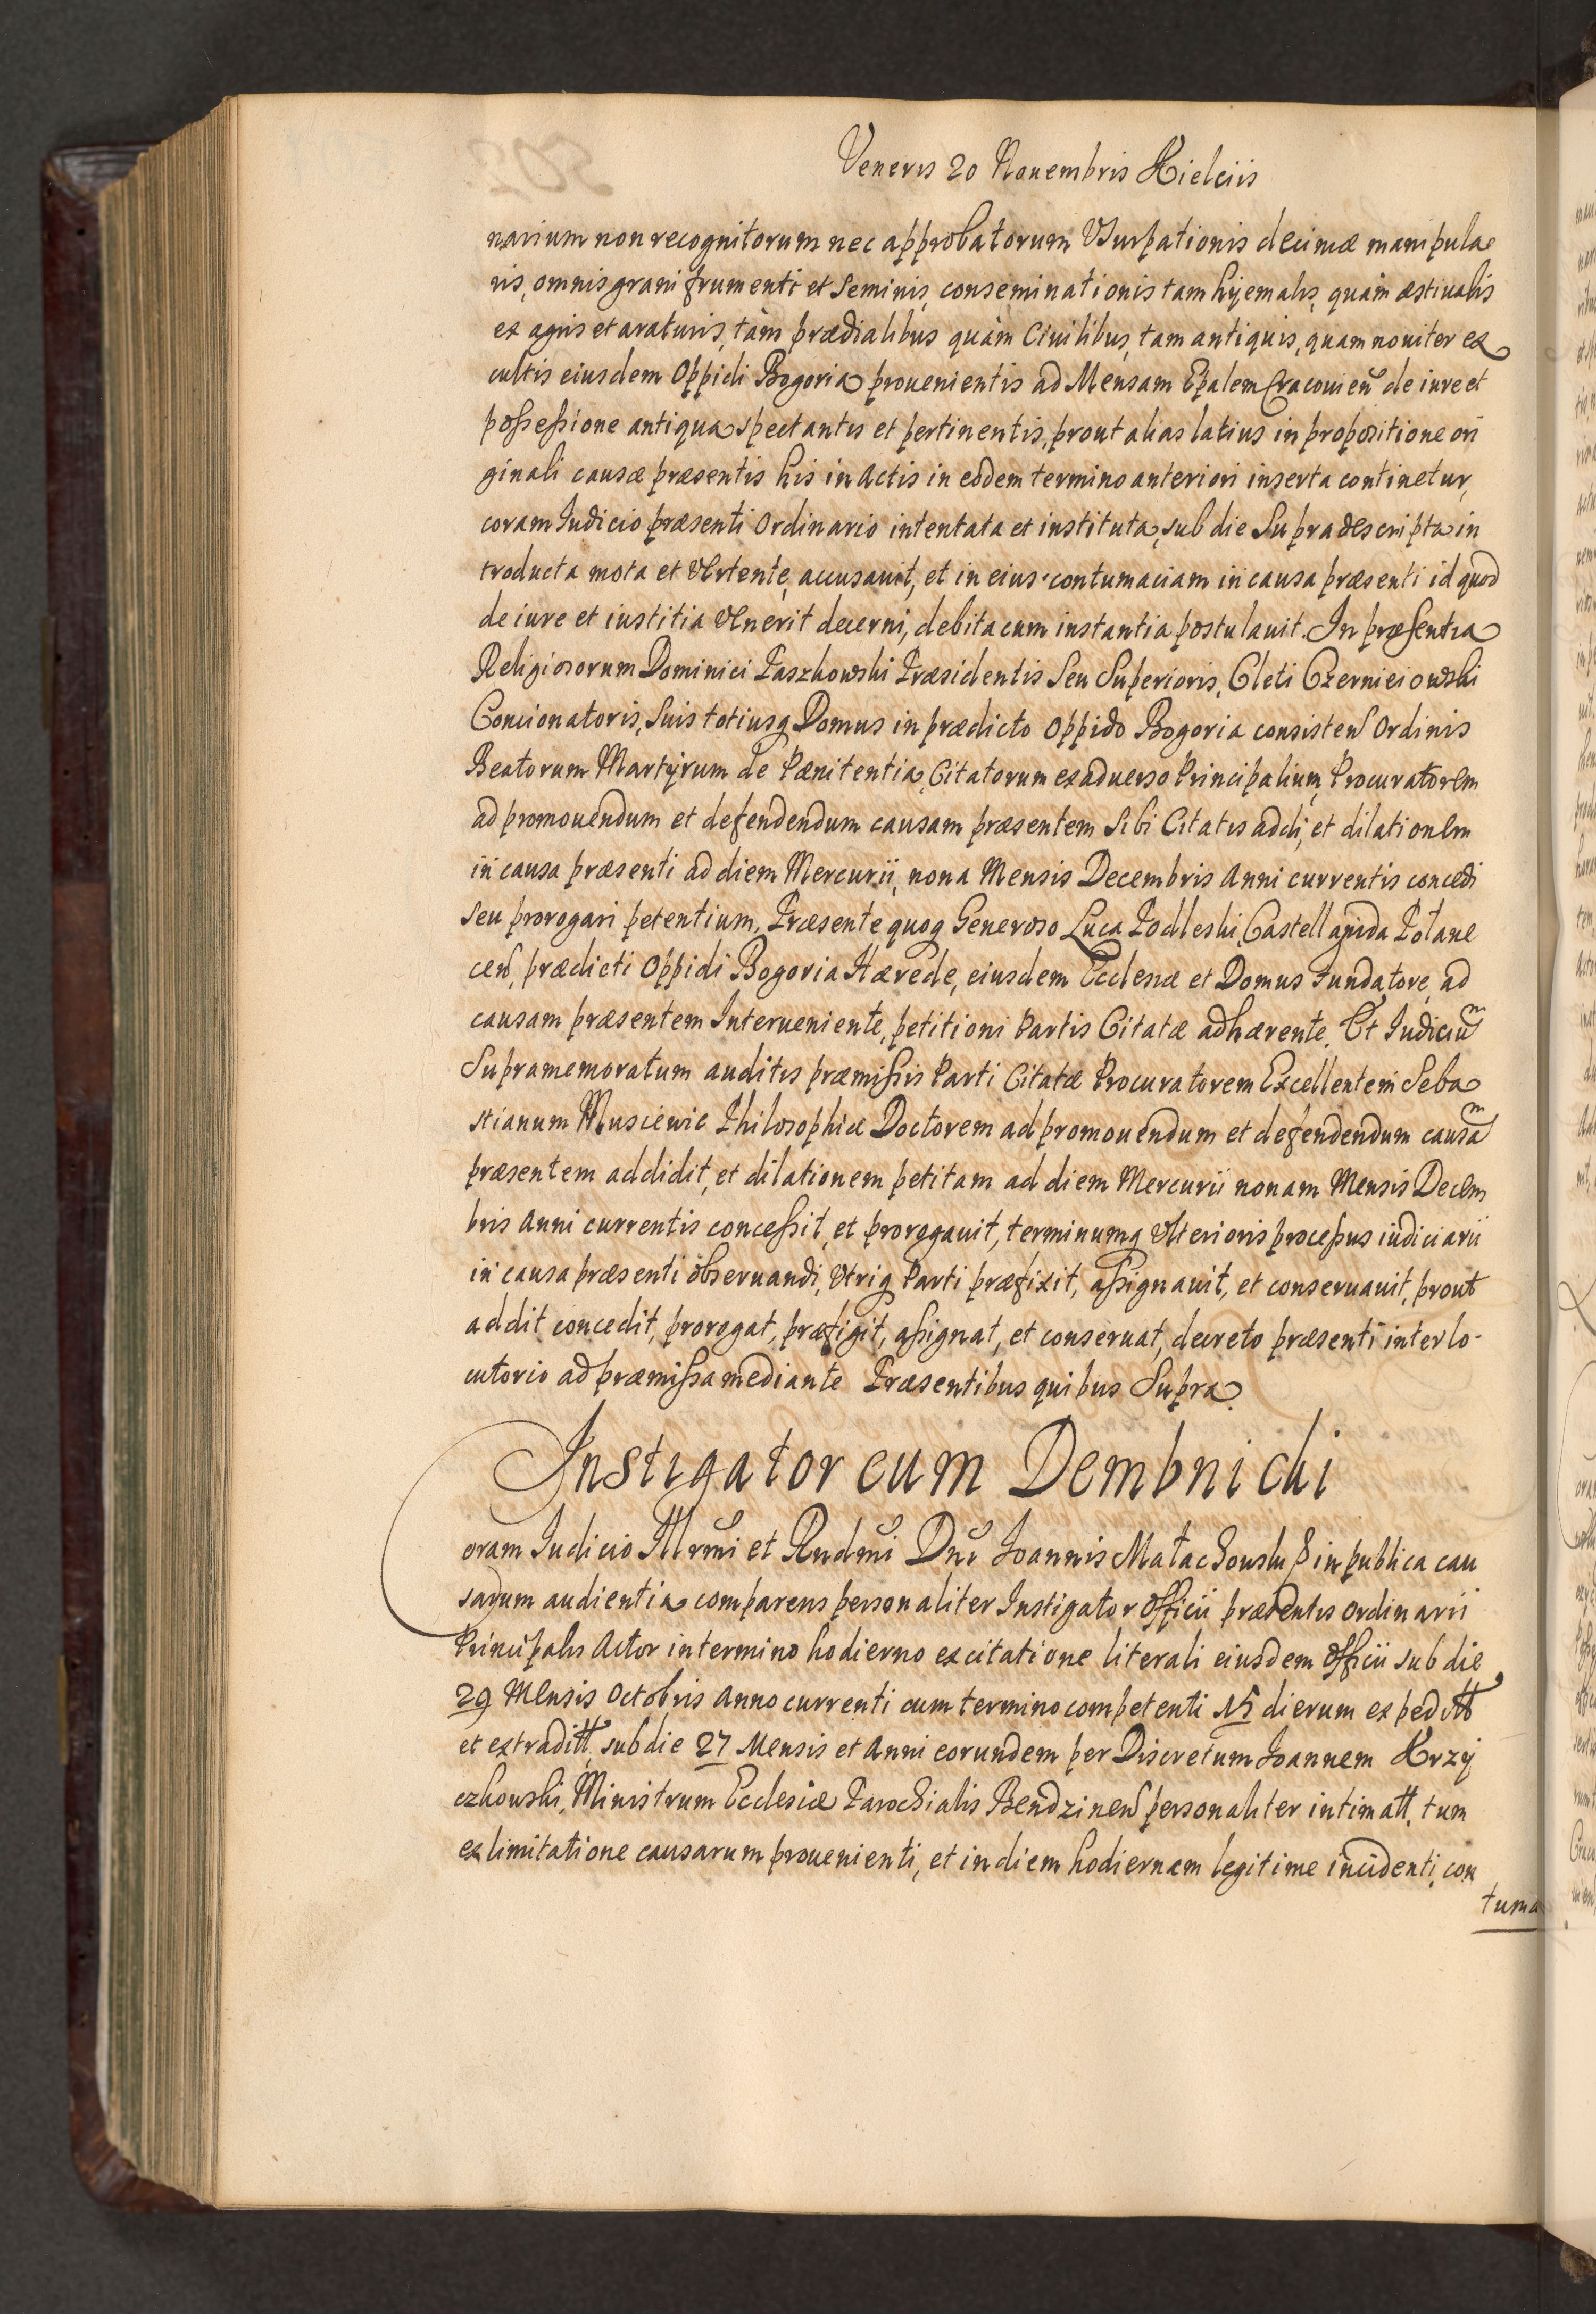 Veneris 20 Nouembris Kielciis
narium non recognitorum nec approbatorum Vsurpationis decimæ manipula
ris, omnis grani frumenti et seminis, conseminationis tam hyemalis, quàm æstiualis
ex agris et araturis, tàm prædialibus quàm Ciuilibus, tam antiquis, quam nouiter ex
cultis eiusdem Oppidi Bogoria prouenientis ad Mensam Epalem Cracouien̄ de iure et
possessione antiqua spectantis et pertinentis, prout alias latius in propositione ori
ginali causæ præsentis his in Actis in eodem termino anteriori inserta continetur,
coram Iudicio præsenti Ordinario intentata et instituta, sub die Supradescripta in
troducta mota et Vertente, accusauit, et in eius contumaciam in causa præsenti id quod
de iure et iustitia Venerit decerni, debita cum instantia postulauit. In præsentia
Religiosorum Dominici Paszkowski Præsidentis Seu Superioris, Cleti Czerniciowski
Concionatoris, Suis totiusq Domus in prædicto Oppido Bogoria consisten̄ Ordinis
Beatorum Martyrum de Pænitentia, Citatorum ex aduerso Principalium, Procuratorem
ad promouendum et defendendum causam præsentem Sibi Citatis addi, et dilationem
in causa præsenti ad diem Mercurii, nona Mensis Decembris Anni currentis concedi
seu prorogari petentium, Præsente quoq Generoso Luca Podleski, Castell
cen̄, prædicti Oppidi Bogoria Hærede, eiusdem Ecclesiæ et Domus Fundatore, ad
causam præsentem Interueniente, petitioni Partis Citatæ adhærente. Et Iudiciu͞m
Supramemoratum auditis præmissis Parti Citatæ Procuratorem Excellentem Seba
stianum Muscewic Philosophiæ Doctorem ad promouendum et defendendum causa͞m
præsentem addidit, et dilationem petitam ad diem Mercurii nonam Mensis Decem
bris Anni currentis concessit, et prorogauit, terminumq Vlterioris processus iudiciarii
in causa præsenti obseruandi, Vtriq Parti præfixit, assignauit, et conseruauit, prout
addit, concedit, prorogat, præfigit, assignat, et conseruat, decreto præsenti interlo-
cutorio ad præmissa mediante Præsentibus quibus Supra.
Instigator cum Dembnicki
Coram Iudicio Illrmi et Rndmi Dni Ioannis Małachowski in publica cau
sarum audientia comparens personaliter Instigator Officii præsentis Ordinarii
Principalis Actor in termino hodierno ex citatione literali eiusdem Officii sub die
29 Mensis Octobris Anno currenti cum termino competenti 15 dierum expeditt
et extraditt, sub die 27 Mensis et Anni eorundem per Discretum Ioannem Krzy
czkowski, Ministrum Ecclesiæ Parochialis Bendzinen̄ personaliter intimatt, tum
ex limitatione causarum prouenienti, et in diem hodiernam legitime incidenti, con
tuma